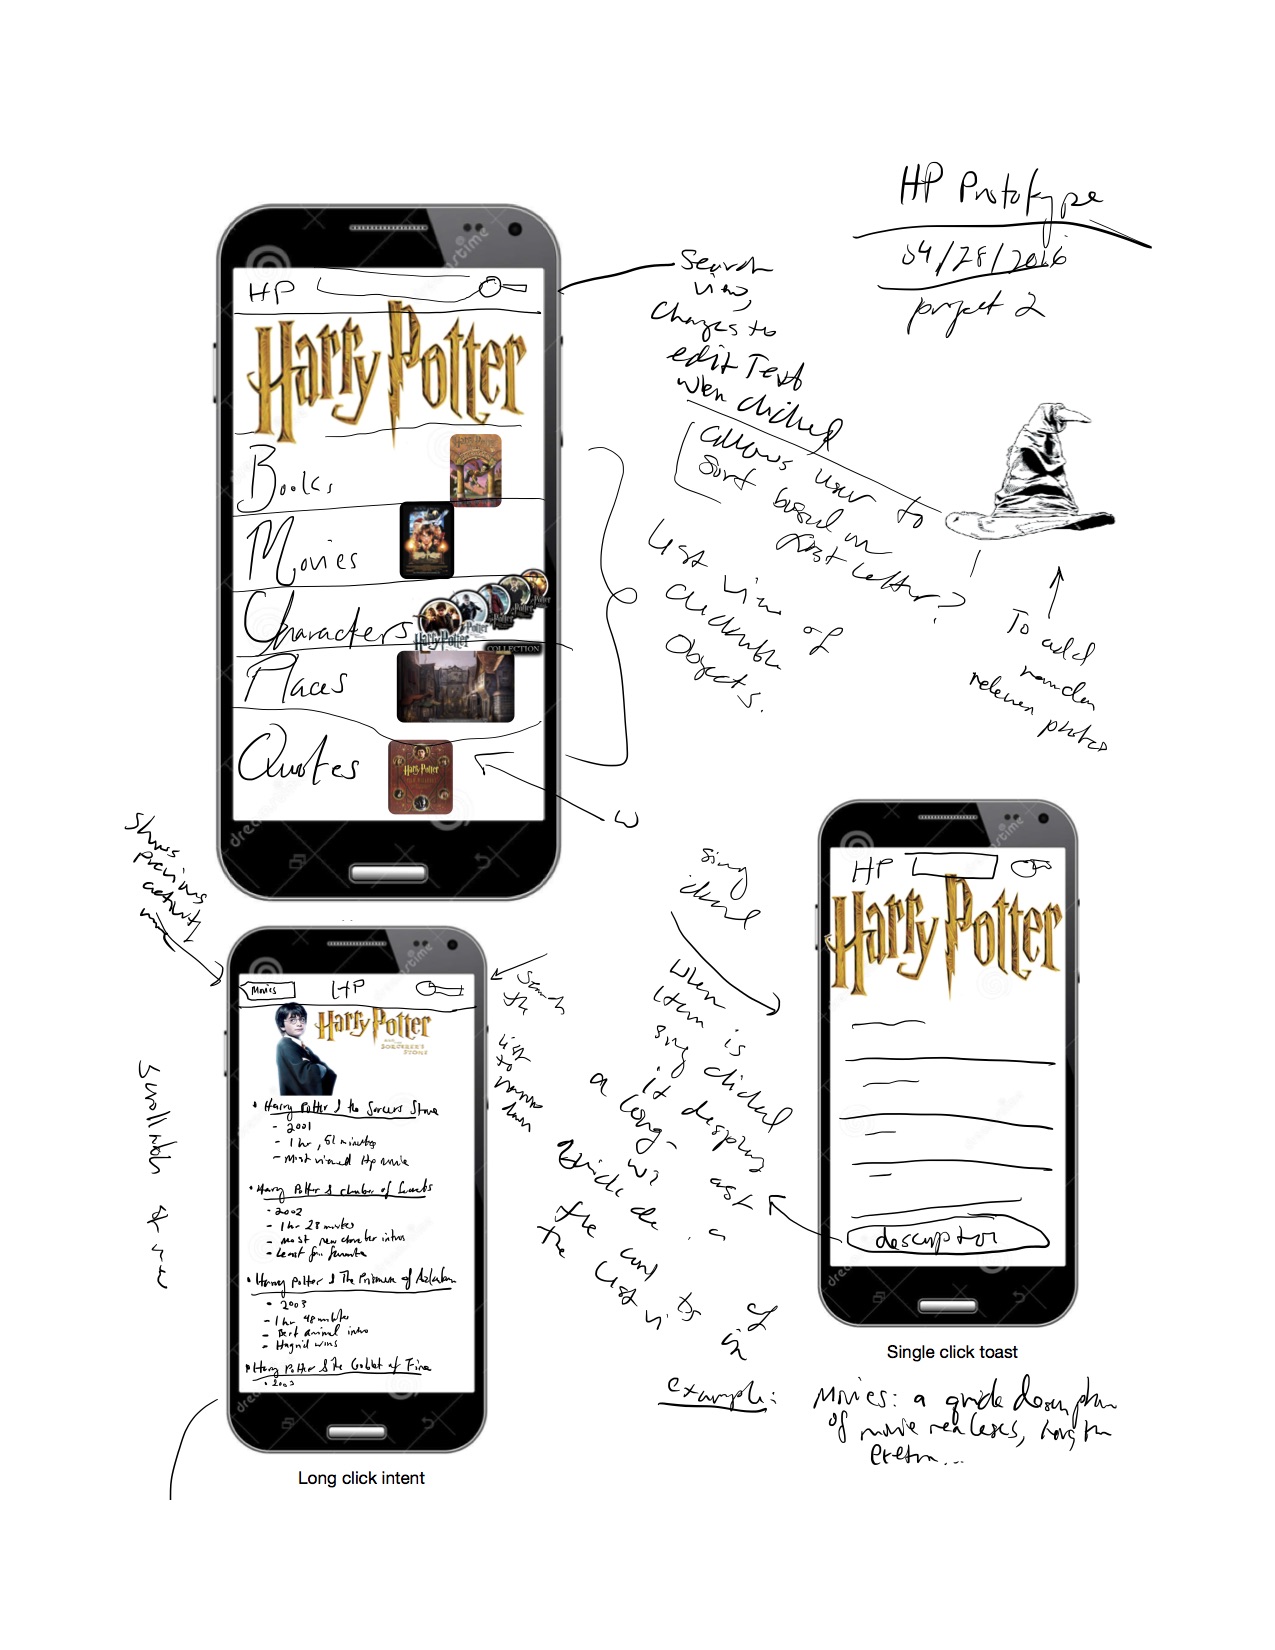 HP Prototype
04/28/2016
project 2
HP
Harry Potter
Books
Movies
Characters
Places
Quotes
COLLECTION
Search
view,
changes to
edit Text
when clicked
allows user to
sort based on
first letter?
list view of
clickable
Objects.
To add
random
relevant photos
Shows
previous
activity
Movies
HP
Harry Potter
AND THE
SORCERER'S
STONE
Search
the
list
to
narrow
down
• Harry Potter & the Sorcers Stone
- 2001
- 1 hr, 51 minutes
- Most viewed Hp movie
• Harry Potter & chamber of Secrets
- 2002
- 1 hr 28 minutes
- most new character intros
- Least fan favorite
• Harry Potter & The Prisoner of Azkaban
• 2003
- 1 hr 48 minutes
- Best animal intro
- Hagrid wins
• Harry Potter & the Goblet of Fire
• 2003
Long click intent
When
item is
sing clicked
it displays
a long
the
the list
HP
Harry Potter
descriptor
Single click toast
example:
Movies: a quick description
of movie realeses, length